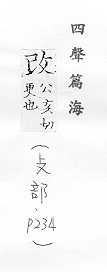 四聲篇海
改 公亥切
更也
(攴部、P234)